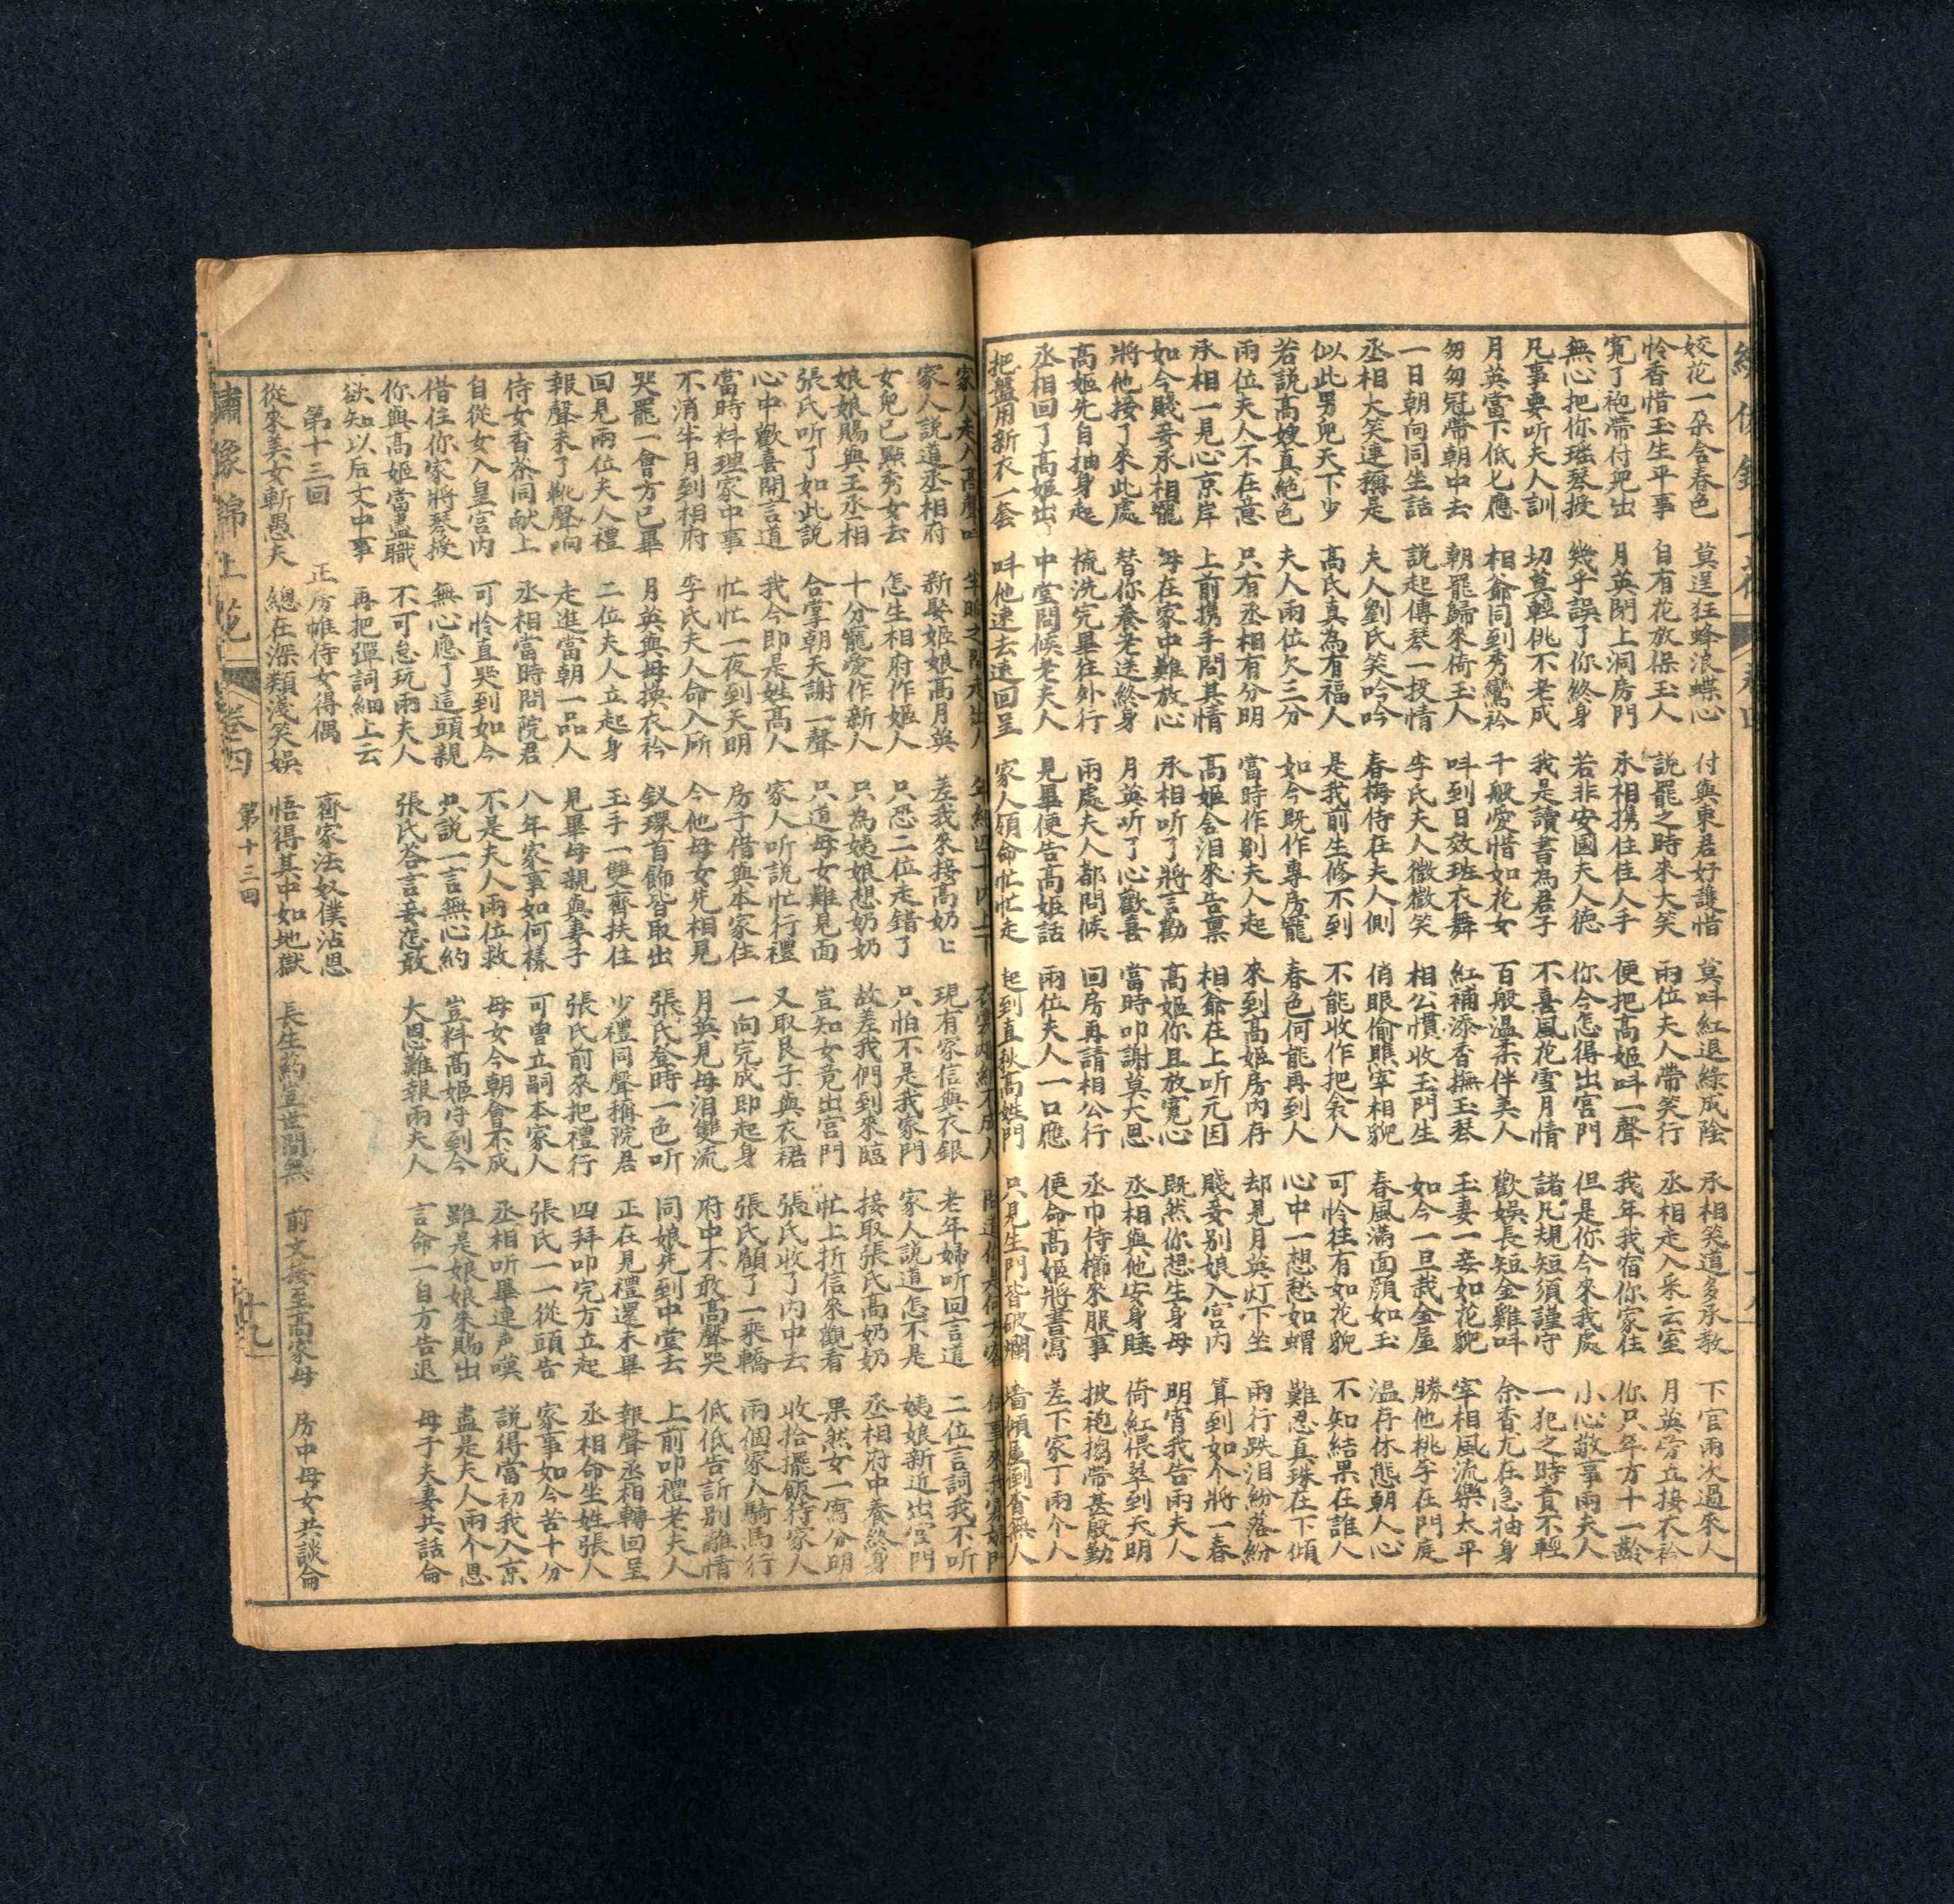 姣花一朵含春色 莫逞狂蜂浪蝶心 付與東君好護惜 莫呌紅退綠成陰 承相笑道多承教 下官兩次過來人
怜香惜玉生平事 自有花放保玉人 說罷之時來大笑 兩位夫人帶笑行 丞相走入采云室 月英旁立接衣衿
寬了袍帶付兜出 月英閉上洞房門 承相携住佳人手 便把高姬呌一聲 我年我宿你家住 你只年方十一齡
無心把你瑤琴授 幾乎誤了你終身 若非安國夫人德 你今怎得出宮門 但是你今來我處 小心敬事兩夫人
凡事要听夫人訓 切莫輕佻不老成 我是讀書為君子 不喜風花雪月情 諸凡規短須謹守 一犯之時責不輕
月英當下低匕應 相爺同到秀鸞衿 千般愛惜如花女 百般温柔伴美人 歡娛長短金雞呌 余香尤在急抽身
匆匆冠帶朝中去 朝罷歸來倚玉人 呌到日效班衣舞 紅補添香撫玉琴 玉妻一妾如花貌 宰相風流樂太平
一日朝向同生話 說起傳琴一投情 李氏夫人微微笑 相公慣收玉門生 如今一旦裁金屋 勝他桃李在門庭
丞相大笑連稱是 夫人劉氏笑吟吟 春梅侍在夫人側 俏眼偷瞧宰相貌 春風滿面顔如玉 温存休態朝人心
似此男兒天下少 高氏真為有福人 是我前生修不到 不能收作把衾人 可怜徃有如花貌 不知結果在誰人
若說高嫂真絕色 夫人兩位欠三分 如今既作專房寵 春色何能再到人 心中一想愁如蝟 難忍真珠在下傾
兩位夫人不在意 只有丞相有分明 當時作別夫人起 來到高姬房內存 却見月英灯下坐 兩行跌泪紛落紛
承相一見心京岸 上前携手問其情 高姬含泪來告禀 相爺在上听元因 賤妾別娘入宮內 算到如个將一春
如今賤妾承相寵 每在家中難放心 承相听了將言勸 高姬你且放寬心 既然你想生身母 明宵我告兩夫人
將他接了來此處 替你養老送終身 月英听了心歡喜 當時叩謝莫大恩 丞相與他安身睡 倚紅偎翠到天明
高姬先自抽身起 梳洗完畢往外行 兩處夫人都問候 回房再請相公行 丞巾侍櫛來服事 披袍搊帶甚殷勤
丞相回了高姬出 中堂問候老夫人 見畢便告高姬話 兩位夫人一口應 便命高姬將書寫 差下家丁兩个人
把盤用新衣一套 呌他速去速回呈 家人領命忙忙走 起到直秋高姓門 只見生門皆破爛 墻傾屋倒有無人
家人走入高聲
家人說道丞相府 新娶姬娘高月英 差我來接高奶匕 現有家信與衣銀 老年婦听回言道 二位言詞我不听
女兒已點秀女去 怎生相府作姬人 只恐二位走錯了 只怕不是我家門 家人說道怎不是 姨娘新近出宮門
娘娘賜與王丞相 十分寵愛作新人 只為姨娘想奶奶 故差我們到來臨 接取張氏高奶奶 丞相府中養終身
張氏听了如此說 合掌朝天謝一聲 只道母女難見面 豈知女竟出宮門 忙上折信來觀看 果然女一寫分明
心中歡喜開言道 我今即是姓高人 家人听說忙行禮 又取艮子與衣裙 張氏收了內中去 收拾擺飯待家人
當時料理家中事 忙忙一夜到天明 房子借與本家住 一向完成即起身 張氏顧了一乘轎 兩個家人騎馬行
不消半月到相府 李氏夫人命入所 今他母女先相見 月英見母泪雙流 府中不敢高聲哭 低低告訴別離情
哭罷一會方已畢 月英與母換衣衿 釵環首飾皆取出 張氏登時一色听 同娘先到中堂去 上前叩禮老夫人
回見兩位夫人禮 二位夫人立起身 玉手一雙齊扶住 少禮同聲稱院君 正在見禮還未畢 報聲丞相轉回呈
報聲未了靴聲响 走進當朝一品人 見畢母親與妻子 張氏前來把禮行 四拜叩完方立起 丞相命坐姓張人
侍女香茶同献上 丞相當時問院君 八年家事如何樣 可曾立嗣本家人 張氏一一從頭告 家事如今苦十分
自從女入皇宮內 可怜直哭到如今 不是夫人兩位救 母女今朝會不成 丞相听畢連声嘆 說得當初我入京
借住你家將琴授 無心應了這頭親 只說一言無心約 豈料高姬守到今 雖是娘娘來賜出 盡是夫人兩个恩
你與高姬當盡職 不可怠玩兩夫人 張氏荅言妾怎敢 大恩難報兩夫人 言命一自方告退 母子夫妻共話侖
欲知以后文中事 再把彈詞細上云
第十三回 正房帷侍女得偶 齊家法奴僕沾恩
從來美女斬愚夫 總在深類淺笑娛 悟得其中如地獄 長生葯豈世間無 前文接至高家母 房中母女共談侖
繡像錦上花 卷四 第十三回 十九